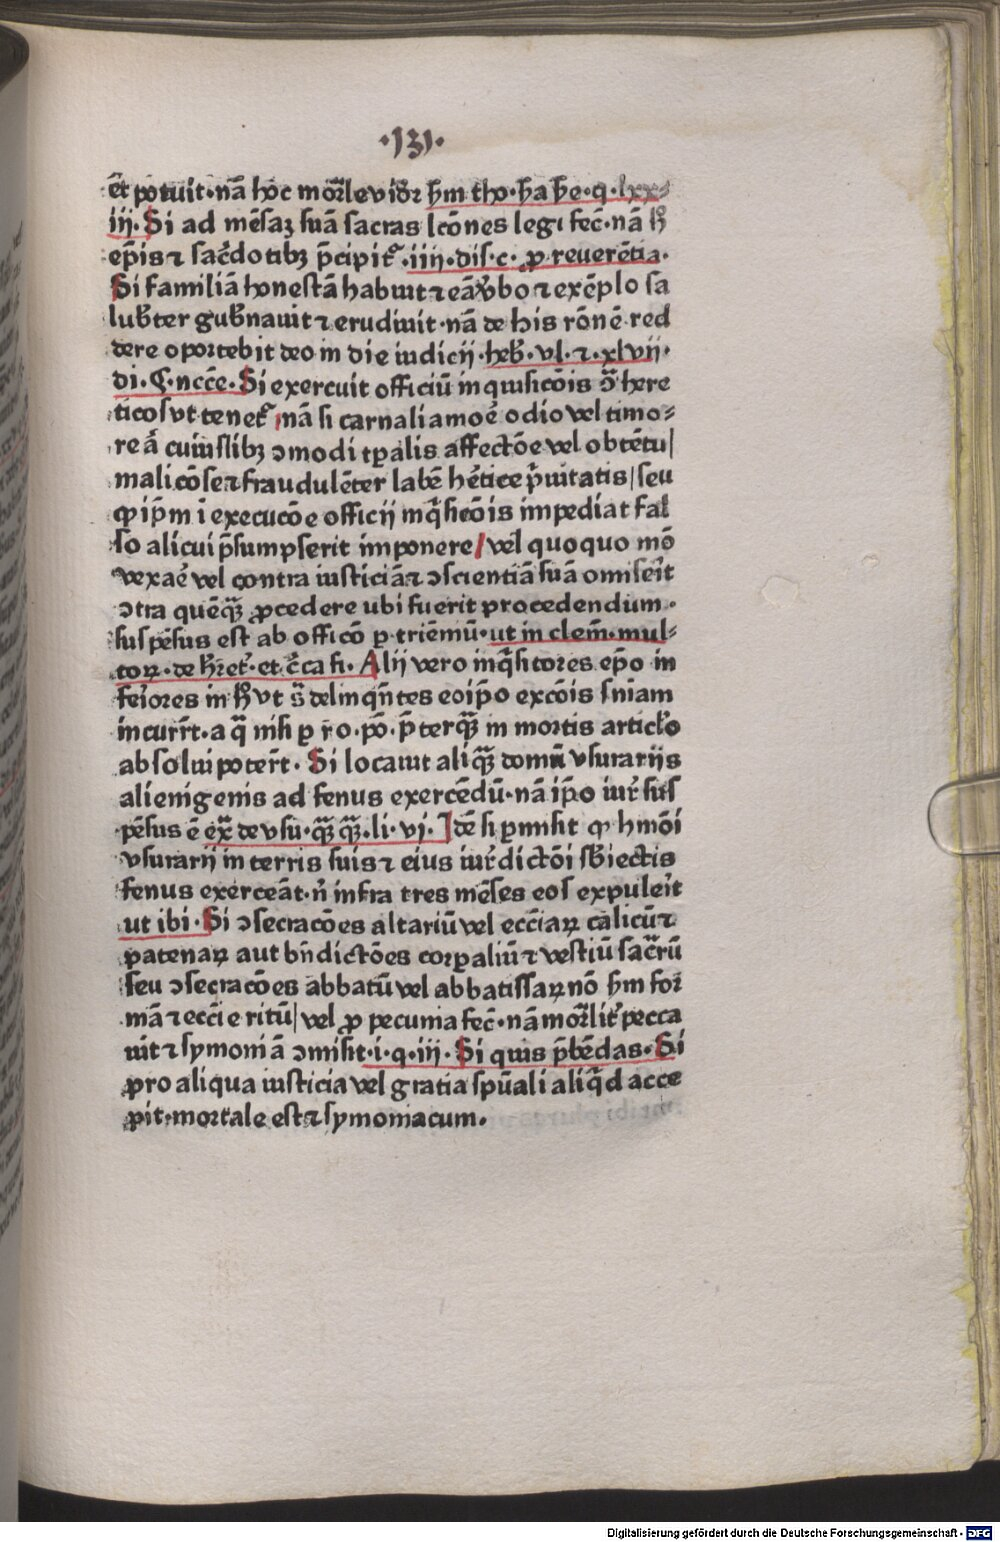 ·131·
et̄ potuit·nā hoc mor̄le vidr̄ ẜm tho·ẜa ẜe·q·lxx⸗
iij·Si ad mēsaꝫ suā sacras lcōnes legi fec̄·nā hͦ
ep̄is ⁊ sac̄dotibꝫ p̄cipit᷑·iiij·dis·c·ꝓ reuerētia·
Si familiā honestā habuit ⁊ eā v̄bo ⁊ exēplo sa
lub̄ter gub̄nauit ⁊ erudiuit·nā de his rōnē red
dere oportebit deo in die iudicij·heb̄·vl·⁊·xlvij·
di·¶·nccē·Si exercuit officiū inquisicōis ↄ̄ here
ticos vt tenet᷑ nā si carnali amoē odio vel timo⸗
re aͨ cuiuslibꝫ ↄmodi tꝑalis affectōe vel obtētu|
malicōse ⁊ fraudulēter labē hētice p̄uitatis|seu
ꝙ ip̄m ī execucōe officij inqͥsicōis impediat fal
so alicui p̄sumpserit imponere/vel quoquo mō
vexaē vel contra iusticiā ⁊ ↄscientiā suā omiseīt
ↄtra quēqᷓꝫ ꝓcedere ubi fuerit procedendum·
suspēsus est ab officō ꝑ triēmū·ut in clem̄·mul⸗
toꝝ·de h̄ret᷑·et c̄ca fi·Alij vero inqͥsitores ep̄o in
feīores in hͦ vt s̄ delinqn̄tes eoip̄o excōis sniam
incurr̄t·a qᷓ nisi ꝑ ro·pō·p̄terqᷓꝫ in mortis articl̄o
absolui poter̄t·Si locauit aliqᷓꝫ domū vsurarijs
alienigenis ad fenus exercēdū·nā ip̄o iur̄ sus
pēsus ē exᷓ de vsu·qᷓꝫ qᷓꝫ·li·vj·]dē si ꝑmisit ꝙ hmōi
vsurarij in terris suis ⁊ eius iur̄dictōi sb̄iectis
fenus exerceāt·n̄ infra tres mēses eos expuleīt
ut ibi·Si ↄsecracōes altariū vel ecc̄iaꝝ calicū ⁊
patenaꝝ aut bn̄dictōes corꝑaliū ⁊ vestiū sac̄rū
seu ↄsecracōes abbatū vel abbatissaꝝ nō ẜm for
mā ⁊ ecc̄ie ritū|vel ꝓ pecunia fec̄·nā mor̄lit᷑ pecca
uit ⁊ symoniā ↄmisit·i·q·iij·Si quis p̄bēdas·Si
pro aliqua iusticia vel gratia spūali aliqͥd acce
pit·mortale est ⁊ symoniacum·
Digitalisierung gefördert durch die Deutsche Forschungsgemeinschaft - DFG